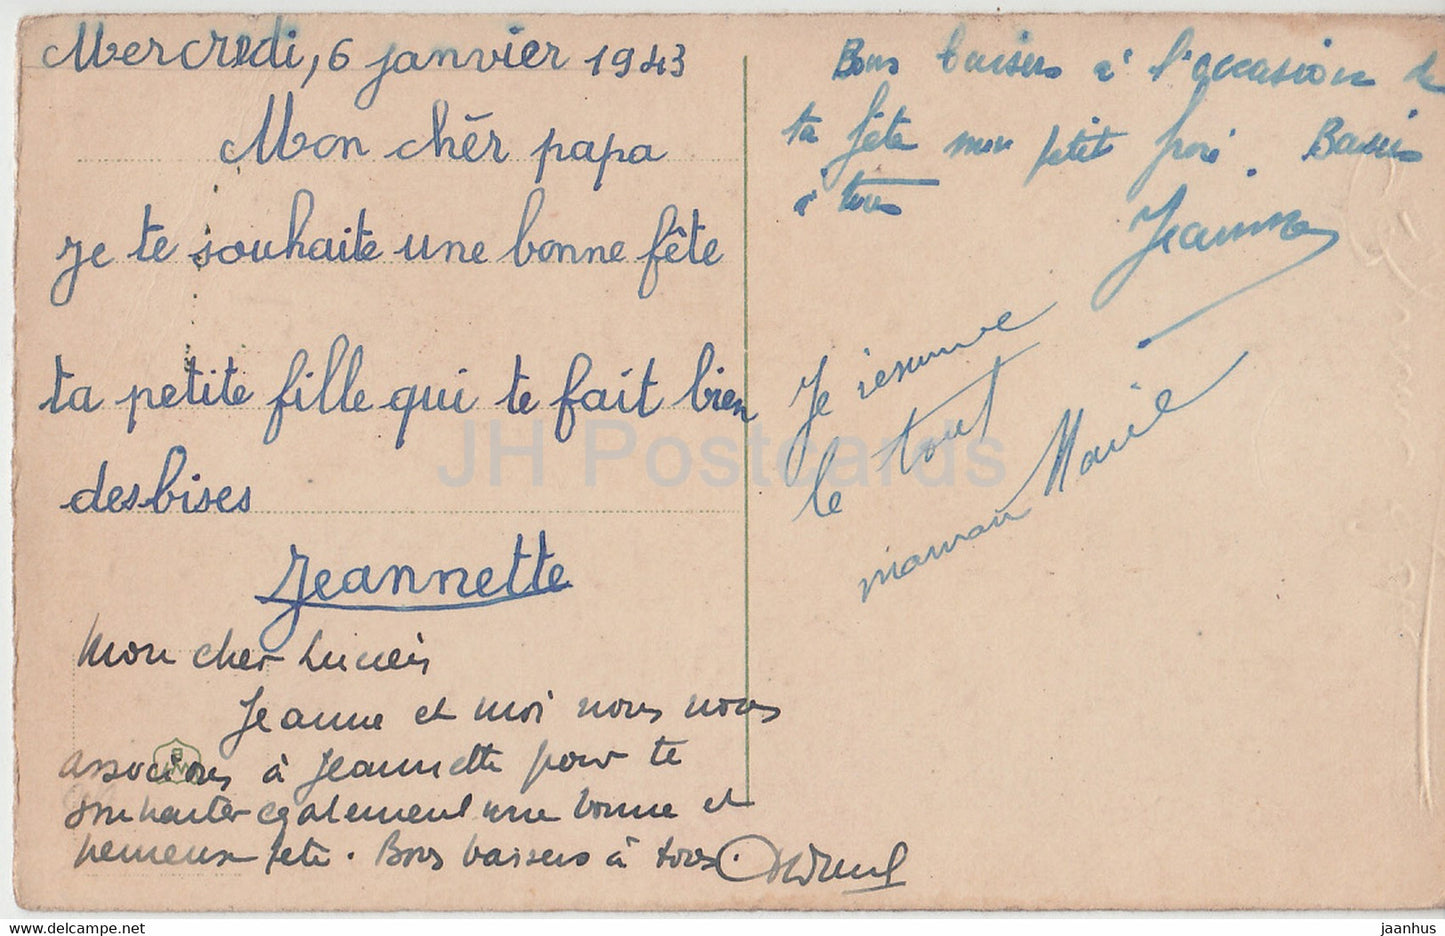 Mercredi, 6 janvier 1943
Mon chêr papa
je te souhaite une bonne fête
ta petite fille qui te fait bien
des bises
Jeannette
Mon cher Lucien
Jeanne et moi nous nous
associons à Jeannette pour te
souhaiter egalement une bonne et
heureuse fete. Bons baisers à tous.
Bons baisers à l'occasion de
ta fête mon petit frère. Baisers
à tous
Jeanne
Je résume
le tout
maman Marie
JH Postcards
jaanhus